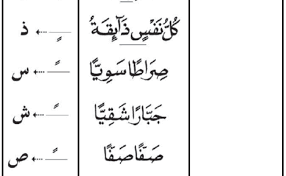 كُلُّ نَفْسٍ ذَآئِقَةُ ـٍ ← ذ
صِرَاطًا سَوِيًّا ـً ← س
جَبَّارًا شَقِيًّا ـً ← ش
صَفًّا صَفًّا ـً ← ص